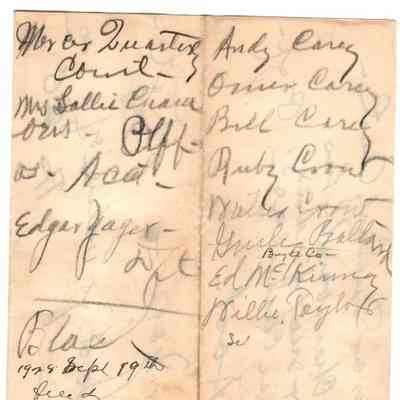 Mercer Quarterly
Court -
Mrs Sallie
Plff -
vs - Acct -
Edgar Yager -
Dft
1928 Sept 19th
Filed
Andy Carey
Omer Carey
Bill Carey
Ruby Crow
Walter Crow
Ballard
Boyle Co -
Ed McKinney
Willie Taylor